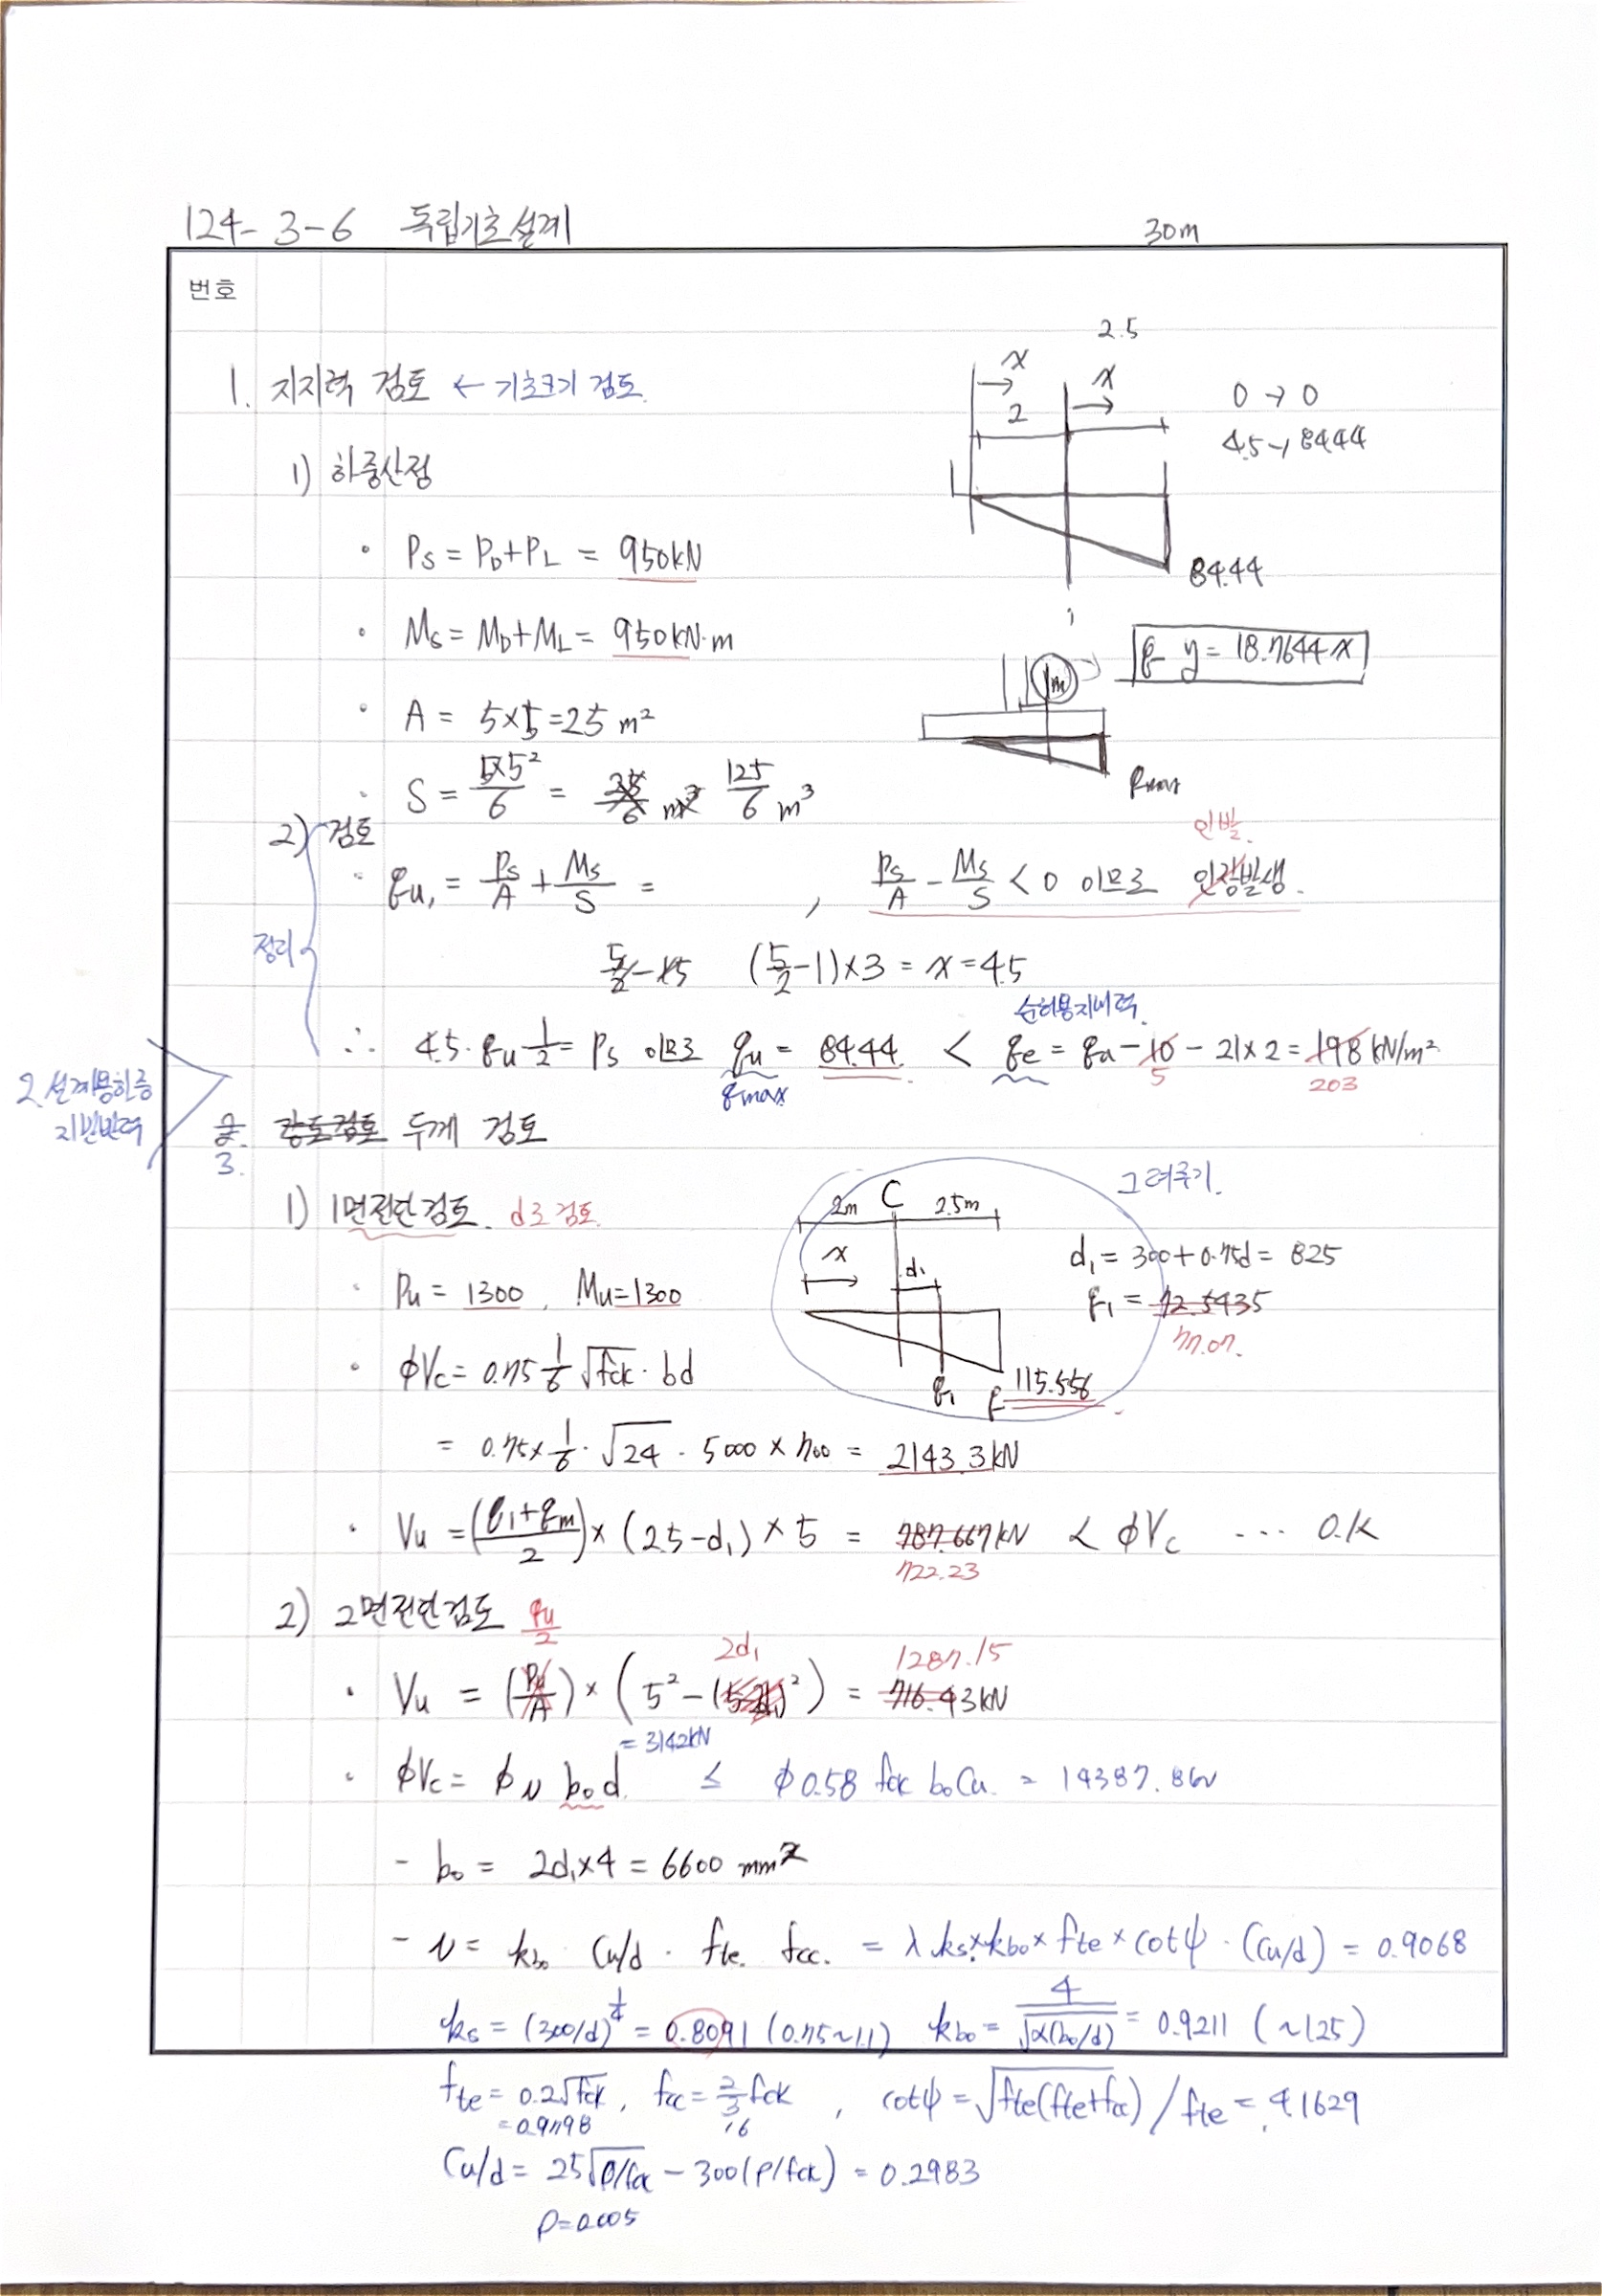 124-3-6 독립기초설계 30m
번호
1. 지지력 검토 ← 기초크기 검토.
2.5
x
x
2
0 → 0
4.5 → 84.44
84.44
1) 하중산정
· Ps = PD+PL = 950kN
· Ms = MD+ML = 950kN·m
y = 18.7644x
1m
· A = 5×5=25 m²
qmax
· S = 5×5²/6 = 125/6 m³
2) 검토
· qu₁ = Ps/A + Ms/S = , Ps/A - Ms/S < 0 이므로 인발 발생.
정리
(5/2-1)×3 = x = 4.5
순허용지내력
∴ 4.5·qu 1/2 = Ps 이므로 qu = 84.44 < qe = qa - 10 - 21×2 = 198 kN/m²
qmax
5
203
2. 설계용하중
지반반력
2. 강도검토 두께 검토
3.
1) 1면전단검토. d로 검토.
2m C 2.5m
그려주기.
x
d₁
d₁ = 300+0.75d = 825
· Pu = 1300, Mu=1300
q₁ = 72.5435
77.07.
· φVc = 0.75 1/6 √fck · bd
q₁
115.556
= 0.75×1/6·√24 · 5000×700 = 2143.3kN
· Vu = (q₁+qm/2)×(2.5-d₁)×5 = 787.667kN < φVc ... O.K
722.23
2) 2면전단검토 qu/2
2d₁
1287.15
· Vu = (Pu/A)×(5²-( )²) = 716.43kN
= 3142kN
· φVc = φ v b₀d. ≤ φ0.58 fck b₀Cu. = 14387.8kN
- b₀ = 2d₁×4 = 6600 mm
- v = kb₀ Cu/d · fte. fcc. = λ·ks×kbo×fte×cotψ·(Cu/d) = 0.9068
ks = (300/d)^1/4 = 0.8091 (0.75~1.1) kbo = 4/√α(b₀/d) = 0.9211 (~1.25)
fte = 0.2√fck, fcc = 2/3 fck, cotψ = √fte(fte+fcc) / fte = 4.1629
= 0.9798
16
Cu/d = 25√ρ/fck - 300(ρ/fck) = 0.2983
ρ=0.005